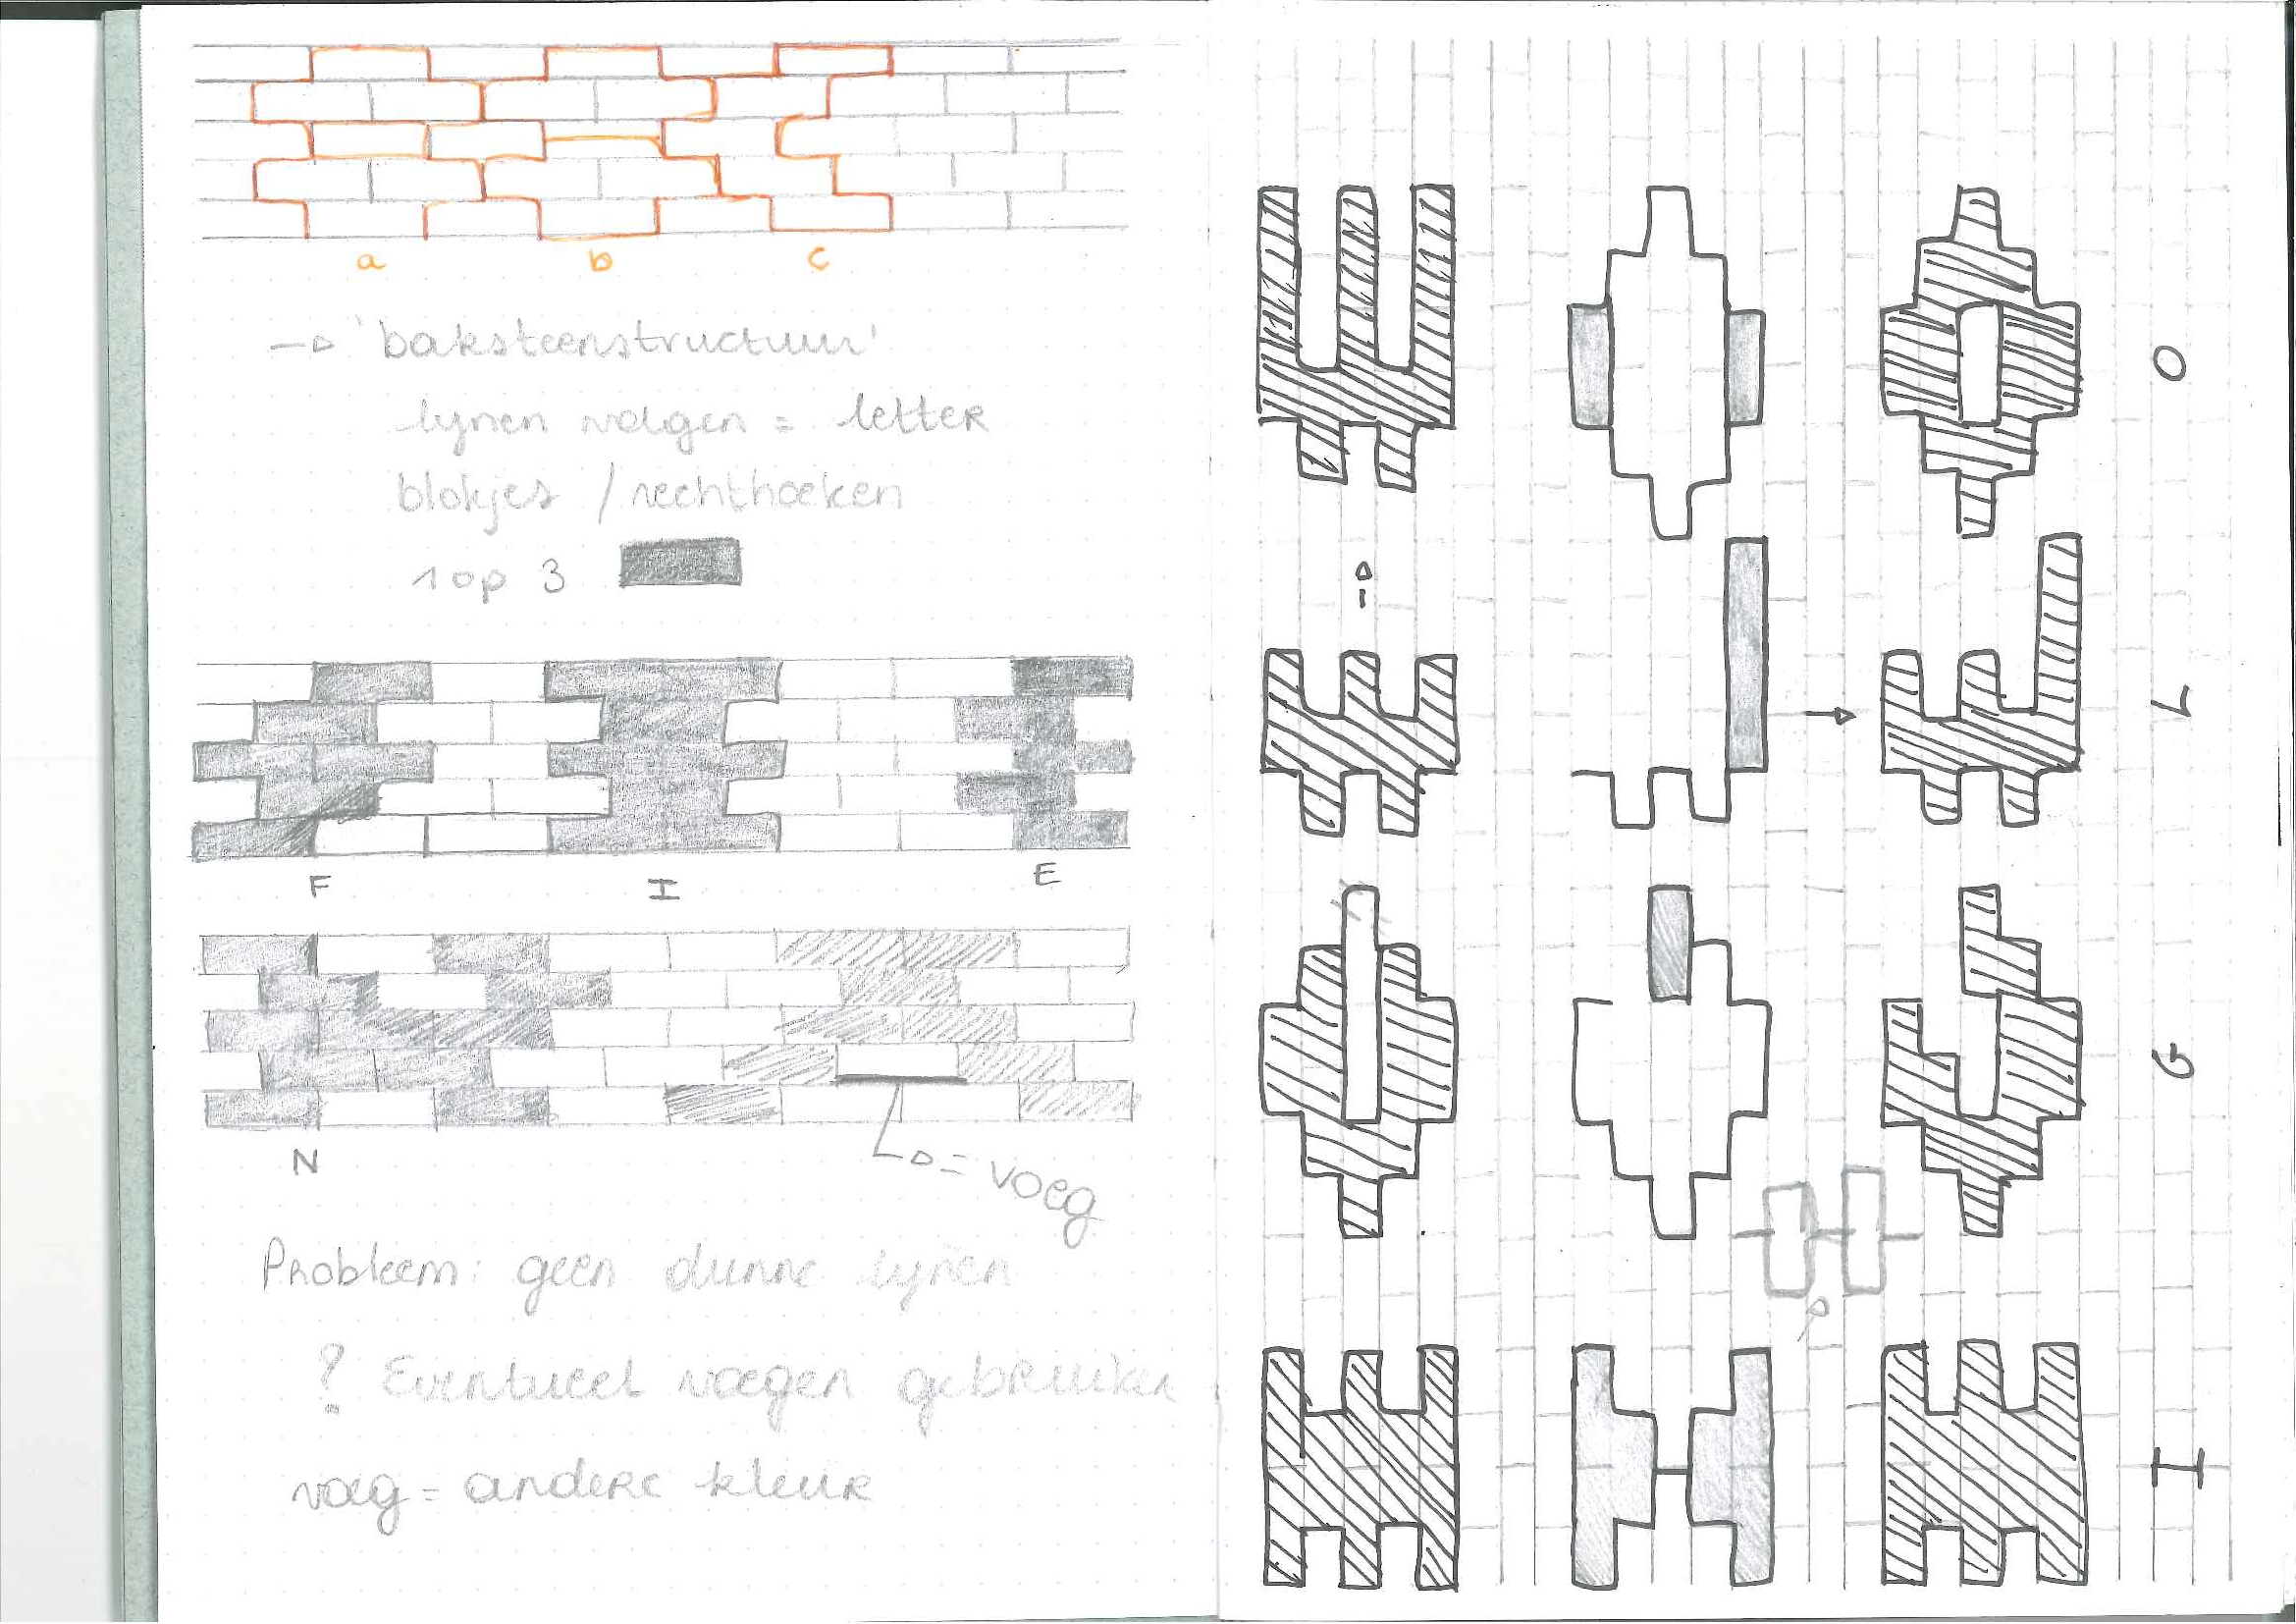 a b c
→ 'baksteenstructuur'
lijnen volgen = letter
blokjes / rechthoeken
1 op 3
F I E
N
→ = voeg
Probleem: geen dunne lijnen
? Eventueel voegen gebruiken
voeg = andere kleur
O
L
G
I